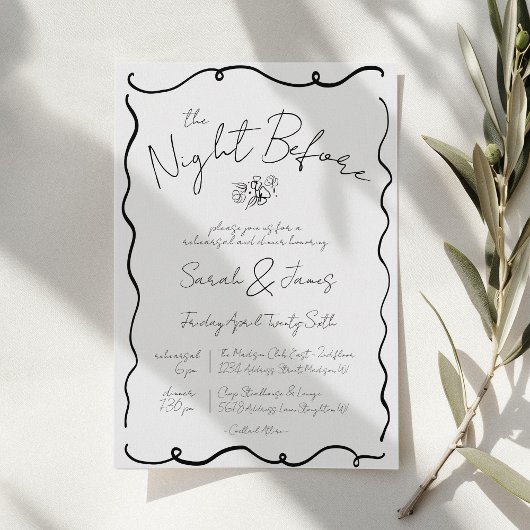 the
Night Before
please join us for a
rehearsal and dinner honoring
Sarah & James
Friday April Twenty Sixth
rehearsal
6 pm
The Madison Club East - 2nd floor
1234 Address Street, Madison WI
dinner
7:30 pm
Chop Steakhouse & Lounge
5678 Address Lane, Stoughton WI
- Cocktail Attire -